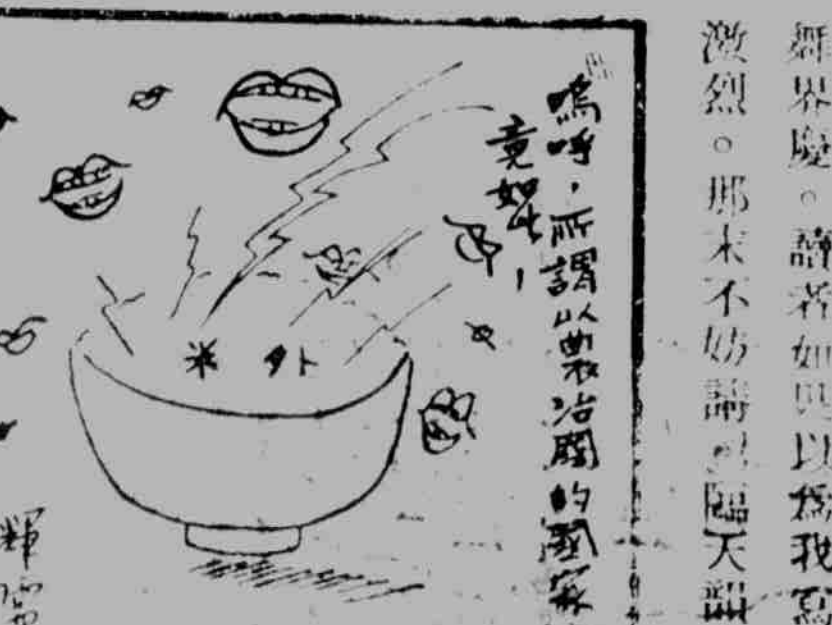 舞界慶。讀者如果以為我寫
激烈。那末不妨請 臨天韻
嗚呼,所謂以農治國的國家
竟如此,
外米
輝